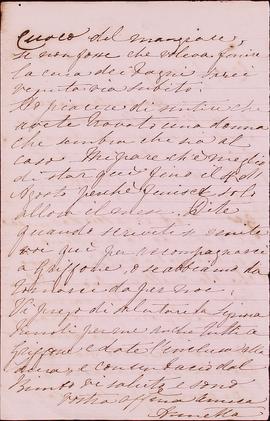 cuoco del mangiare,
se non fosse che voleva finire
la cura dei bagni sarei
venuta via subito.
Ho piacere di sentire che
avete trovato una donna
che sembra che sia al
caso. Mi pare che meglio
di star qui fino il
Agosto perché finisce solo
allora il mese. Dite
quando scrivete se venite
voi qui per accompagnarci
a Griffone, o se abbiamo da
da per noi.
Vi prego di salutare la signora
per me anche tutti a
Griffone e date l'inclusa alla
e con un bacio dal
Bimbo vi saluto e sono
vostra affma amica
Annetta